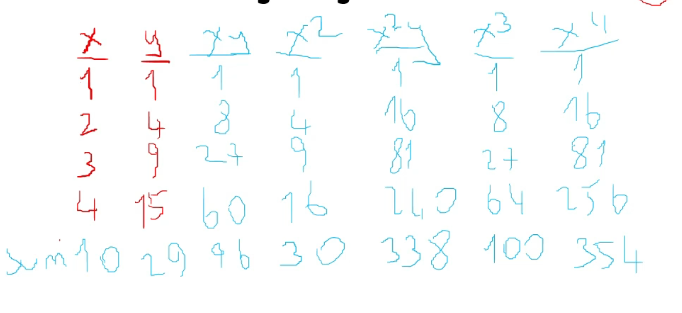 x y xy x² x²y x³ x⁴
1 1 1 1 1 1 1
2 4 8 4 16 8 16
3 9 27 9 81 27 81
4 15 60 16 240 64 256
sum 10 29 96 30 338 100 354